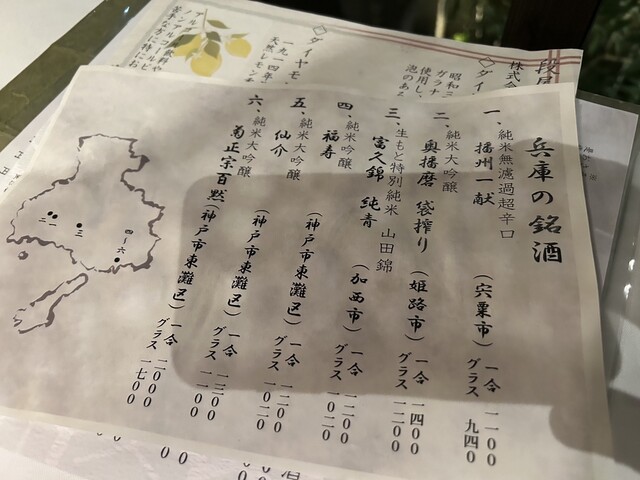 兵庫の銘酒
一、純米無濾過超辛口
播州一献 (宍粟市) 一合 一一00
グラス 九四0
二、純米大吟醸
奥播磨 袋搾り (姫路市) 一合 一四00
グラス 一二00
三、生もと特別純米 山田錦
富久錦 純青 (加西市) 一合 一二00
グラス 一0二0
四、純米吟醸
福寿 (神戸市東灘区) 一合 一二00
グラス 一0二0
五、純米大吟醸
仙介 (神戸市東灘区) 一合 一三00
グラス 一一00
六、純米大吟醸
菊正宗百黙 (神戸市東灘区) 一合 二000
グラス 一七00
二 一
三
四〜六
株式会
◇ダイ
昭和
グラナ
使用し、
泡のあ
◇ダイヤモ
一九一四年
天然レモン